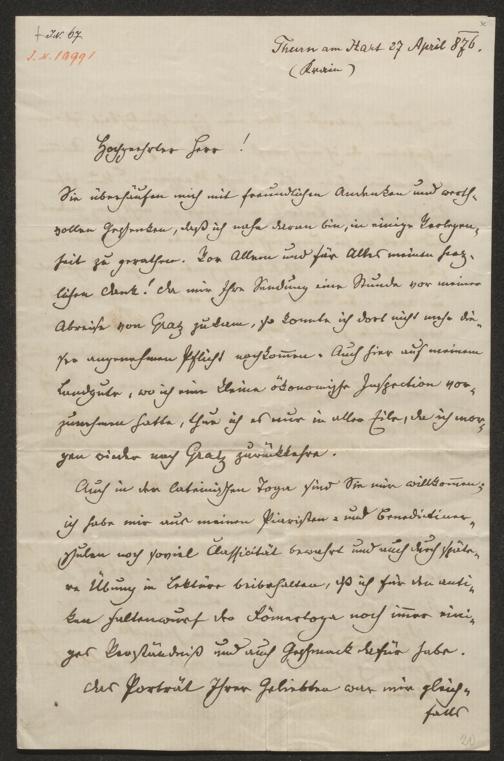 J.N. 67
J.N. 10991
Thurn am Hart 27 April 876.
(Krain)
Hochgeehrter Herr!
Sie überhäufen mich mit freundlichen Andenken und werth-
vollen Geschenken, daß ich nahe daran bin, in einige Verlegen-
heit zu gerathen. Vor Allem und für Alles meinen herz-
lichen Dank! Da mir Ihre Sendung eine Stunde vor meiner
Abreise von Graz zukam, so konnte ich dort nicht mehr die-
ser angenehmen Pflicht nachkommen. Auch hier auf meinem
Landgute, wo ich eine kleine ökonomische Inspection vor-
zunehmen hatte, thue ich es nur in aller Eile, da ich mor-
gen wieder nach Graz zurückkehre.
Auch in der lateinischen Toga sind Sie mir willkommen;
ich habe mir aus meinen Piaristen- und Benedictiner-
schulen noch soviel Classicität bewahrt und auch durch späte-
re Übung in Lektüre beibehalten, daß ich für den anti-
ken Faltenwurf der Römertoga noch immer eini-
ges Verständniß und auch Geschmack dafür habe.
Das Porträt Ihrer Geliebten war mir gleich-
falls